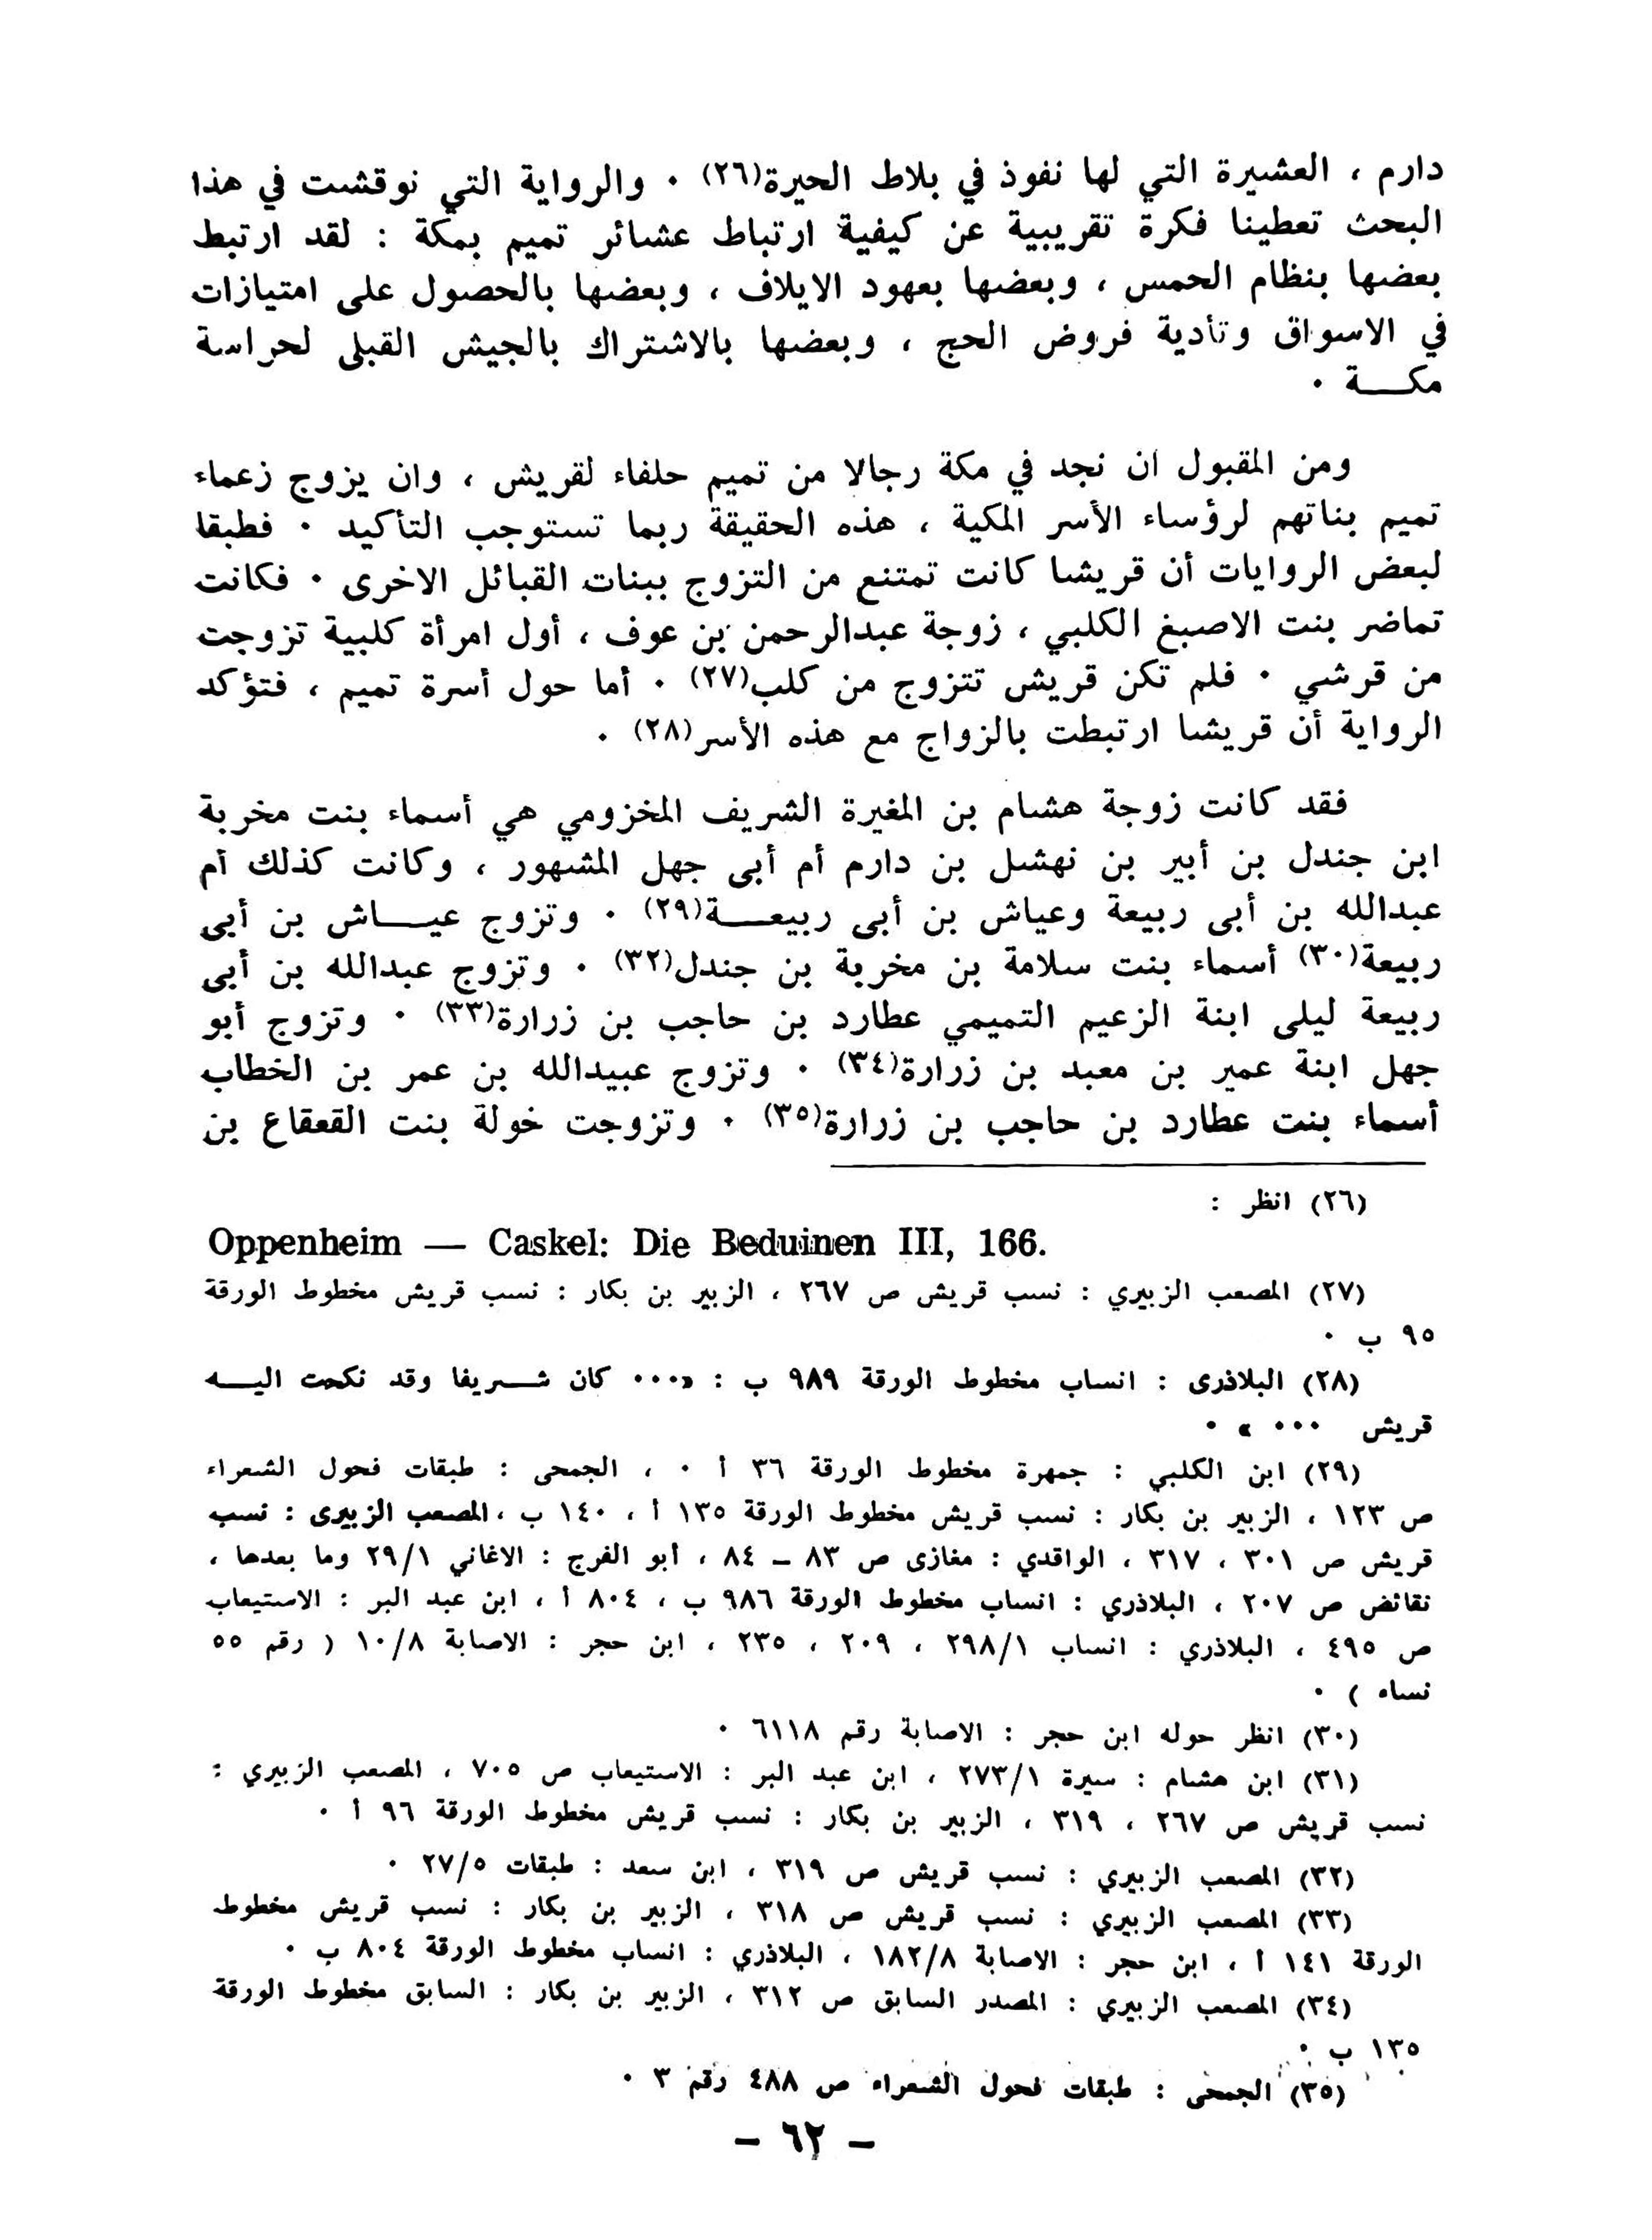 دارم ، العشيرة التي لها نفوذ في بلاط الحيرة(٢٦) ٠ والرواية التي نوقشت في هذا
البحث تعطينا فكرة تقريبية عن كيفية ارتباط عشائر تميم بمكة : لقد ارتبط
بعضها بنظام الحمس ، وبعضها بعهود الايلاف ، وبعضها بالحصول على امتيازات
في الاسواق وتأدية فروض الحج ، وبعضها بالاشتراك بالجيش القبلى لحراسة
مكـــة ٠
ومن المقبول ان نجد في مكة رجالا من تميم حلفاء لقريش ، وان يزوج زعماء
تميم بناتهم لرؤساء الأسر المكية ، هذه الحقيقة ربما تستوجب التأكيد ٠ فطبقا
لبعض الروايات أن قريشا كانت تمتنع من التزوج ببنات القبائل الاخرى ٠ فكانت
تماضر بنت الاصبغ الكلبي ، زوجة عبدالرحمن بن عوف ، أول امرأة كلبية تزوجت
من قرشي ٠ فلم تكن قريش تتزوج من كلب(٢٧) ٠ أما حول أسرة تميم ، فتؤكد
الرواية أن قريشا ارتبطت بالزواج مع هذه الأسر(٢٨) ٠
فقد كانت زوجة هشام بن المغيرة الشريف المخزومي هي أسماء بنت مخربة
ابن جندل بن أبير بن نهشل بن دارم أم أبى جهل المشهور ، وكانت كذلك أم
عبدالله بن أبى ربيعة وعياش بن أبى ربيعـــة(٢٩) ٠ وتزوج عيـــاش بن أبى
ربيعة(٣٠) أسماء بنت سلامة بن مخربة بن جندل(٣٢) ٠ وتزوج عبدالله بن أبى
ربيعة ليلى ابنة الزعيم التميمي عطارد بن حاجب بن زرارة(٣٣) ٠ وتزوج أبو
جهل ابنة عمير بن معبد بن زرارة(٣٤) ٠ وتزوج عبيدالله بن عمر بن الخطاب
أسماء بنت عطارد بن حاجب بن زرارة(٣٥) ٠ وتزوجت خولة بنت القعقاع بن
(٢٦) انظر :
Oppenheim — Caskel: Die Beduinen III, 166.
(٢٧) المصعب الزبيري : نسب قريش ص ٢٦٧ ، الزبير بن بكار : نسب قريش مخطوط الورقة
٩٥ ب ٠
(٢٨) البلاذرى : انساب مخطوط الورقة ٩٨٩ ب : «٠٠٠ كان شـــريفا وقد نكحت اليـــه
قريش ٠٠٠ » ٠
(٢٩) ابن الكلبي : جمهرة مخطوط الورقة ٣٦ أ ٠ ، الجمحى : طبقات فحول الشعراء
ص ١٢٣ ، الزبير بن بكار : نسب قريش مخطوط الورقة ١٣٥ أ ، ١٤٠ ب ، المصعب الزبيرى : نسب
قريش ص ٣٠١ ، ٣١٧ ، الواقدي : مغازى ص ٨٣ – ٨٤ ، أبو الفرج : الاغاني ٢٩/١ وما بعدها ،
نقائض ص ٢٠٧ ، البلاذري : انساب مخطوط الورقة ٩٨٦ ب ، ٨٠٤ أ ، ابن عبد البر : الاستيعاب
ص ٤٩٥ ، البلاذري : انساب ٢٩٨/١ ، ٢٠٩ ، ٢٣٥ ، ابن حجر : الاصابة ١٠/٨ ( رقم ٥٥
نساء ) ٠
(٣٠) انظر حوله ابن حجر : الاصابة رقم ٦١١٨ ٠
(٣١) ابن هشام : سيرة ٢٧٣/١ ، ابن عبد البر : الاستيعاب ص ٧٠٥ ، المصعب الزبيري :
نسب قريش ص ٢٦٧ ، ٣١٩ ، الزبير بن بكار : نسب قريش مخطوط الورقة ٩٦ أ ٠
(٣٢) المصعب الزبيري : نسب قريش ص ٣١٩ ، ابن سعد : طبقات ٢٧/٥ ٠
(٣٣) المصعب الزبيري : نسب قريش ص ٣١٨ ، الزبير بن بكار : نسب قريش مخطوط
الورقة ١٤١ أ ، ابن حجر : الاصابة ١٨٢/٨ ، البلاذري : انساب مخطوط الورقة ٨٠٤ ب ٠
(٣٤) المصعب الزبيري : المصدر السابق ص ٣١٢ ، الزبير بن بكار : السابق مخطوط الورقة
١٣٥ ب ٠
(٣٥) الجمحى : طبقات فحول الشعراء ص ٤٨٨ رقم ٣ ٠
– ٦٢ –